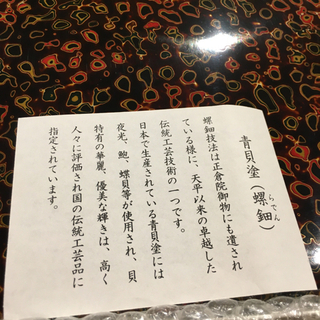 青貝塗(螺鈿)
らでん
螺鈿技法は正倉院御物にも遺され
ている様に、天平以来の卓越した
伝統工芸技術の一つです。
日本で生産されている青貝塗には
夜光、鮑、螺貝等が使用され、貝
特有の華麗、優美な輝きは、高く
人々に評価され国の伝統工芸品に
指定されています。